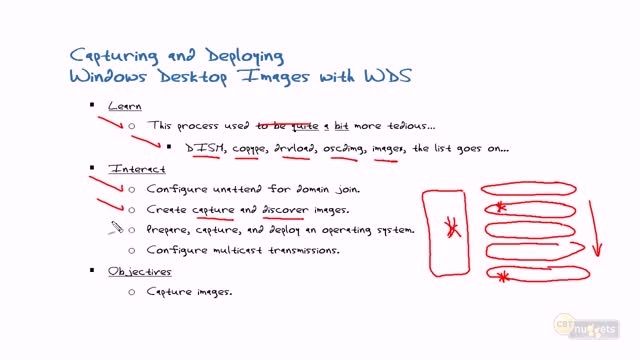 Capturing and Deploying
Windows Desktop Images with WDS
Learn
This process used to be quite a bit more tedious...
DISM, copype, drvload, oscdimg, imagex, the list goes on...
Interact
Configure unattend for domain join.
Create capture and discover images.
Prepare, capture, and deploy an operating system.
Configure multicast transmissions.
Objectives
Capture images.
CBT nuggets